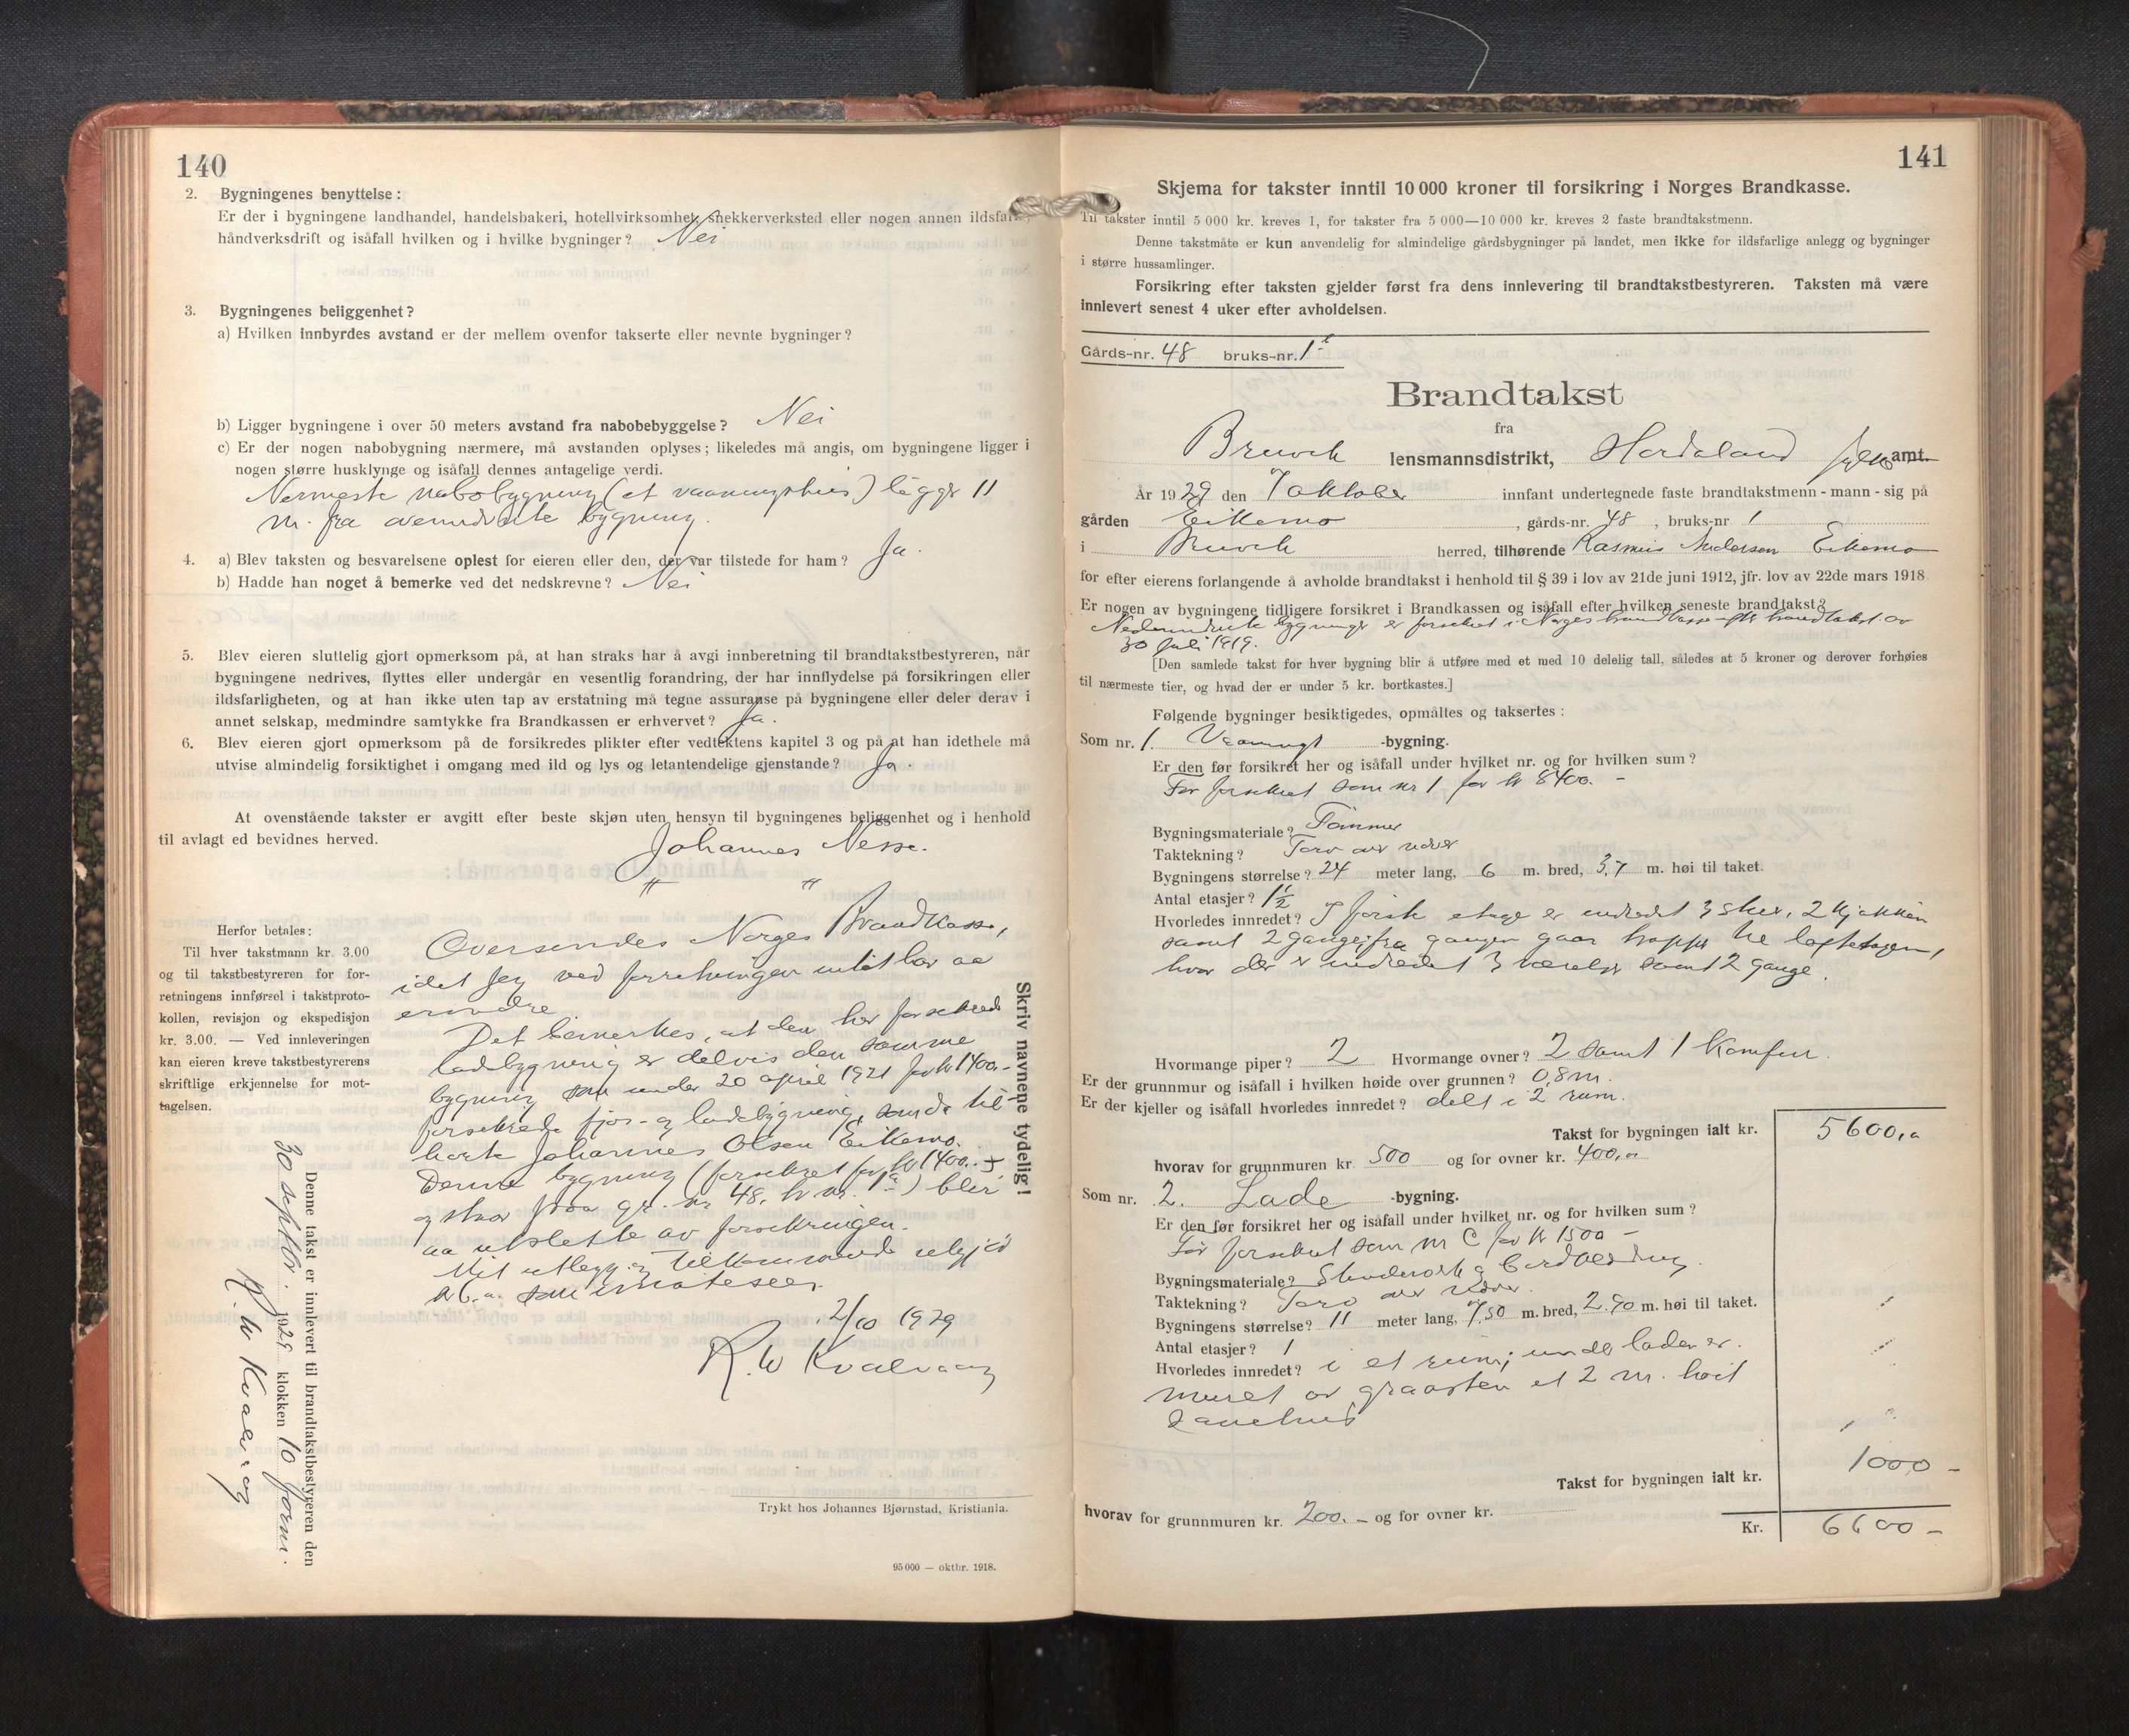 140
2. Bygningenes benyttelse:
Er der i bygningene landhandel, handelsbakeri, hotellvirksomhet, snekkerverksted eller nogen annen ildsfarlig
håndverksdrift og isåfall hvilken og i hvilke bygninger? Nei
3. Bygningenes beliggenhet?
a) Hvilken innbyrdes avstand er der mellem ovenfor takserte eller nevnte bygninger?
b) Ligger bygningene i over 50 meters avstand fra nabobebyggelse? Nei
c) Er der nogen nabobygning nærmere, må avstanden oplyses; likeledes må angis, om bygningene ligger i
nogen større husklynge og isåfall dennes antagelige verdi.
Nermeste nabobygning (et vaaningshus) ligger 11
m. fra ovennævnte bygning.
4. a) Blev taksten og besvarelsene oplest for eieren eller den, der var tilstede for ham? Ja.
b) Hadde han noget å bemerke ved det nedskrevne? Nei
5. Blev eieren sluttelig gjort opmerksom på, at han straks har å avgi innberetning til brandtakstbestyreren, når
bygningene nedrives, flyttes eller undergår en vesentlig forandring, der har innflydelse på forsikringen eller
ildsfarligheten, og at han ikke uten tap av erstatning må tegne assuranse på bygningene eller deler derav i
annet selskap, medmindre samtykke fra Brandkassen er erhvervet? Ja.
6. Blev eieren gjort opmerksom på de forsikredes plikter efter vedtektens kapitel 3 og på at han idethele må
utvise almindelig forsiktighet i omgang med ild og lys og letantendelige gjenstande? Ja.
At ovenstående takster er avgitt efter beste skjøn uten hensyn til bygningenes beliggenhet og i henhold
til avlagt ed bevidnes herved.
Johannes Nesse.
Herfor betales:
Til hver takstmann kr. 3.00
og til takstbestyreren for for-
retningens innførsel i takstproto-
kollen, revisjon og ekspedisjon
kr. 3.00. — Ved innleveringen
kan eieren kreve takstbestyrerens
skriftlige erkjennelse for mot-
tagelsen.
Oversendes Norges Brandkasse,
idet jeg ved forretningen intet har aa
erindre.
Det bemerkes, at den her forsikrede
ladebygning er delvis den samme
bygning som under 20 april 1921 for kr 1400.-
forsikrede fjøs- og ladebygning, som da til-
hørte Johannes Olsen Eikemo.
Denne bygning (forsikret for kr 1400.-
og staar paa gr. nr 48, br nr. 1) blir
aa utslette av forsikringen.
Mit utlegg og tilkommende
kr 6.
2/10 1929
R. W Kvalvaag
Skriv navnene tydelig!
Denne takst er innlevert til brandtakstbestyreren den
30 septbr. 1929 klokken 10 form.
R. W Kvalvaag
Trykt hos Johannes Bjørnstad, Kristiania.
95 000 — oktbr. 1918.
141
Skjema for takster inntil 10 000 kroner til forsikring i Norges Brandkasse.
Til takster inntil 5 000 kr. kreves 1, for takster fra 5 000—10 000 kr. kreves 2 faste brandtakstmenn.
Denne takstmåte er kun anvendelig for almindelige gårdsbygninger på landet, men ikke for ildsfarlige anlegg og bygninger
i større hussamlinger.
Forsikring efter taksten gjelder først fra dens innlevering til brandtakstbestyreren. Taksten må være
innlevert senest 4 uker efter avholdelsen.
Gårds-nr. 48 bruks-nr. 1
Brandtakst
fra
Bruvik lensmannsdistrikt, Hordaland fylke amt.
År 1929 den 7 oktober innfant undertegnede faste brandtakstmenn - mann - sig på
gården Eikemo, gårds-nr. 48, bruks-nr 1
i Bruvik herred, tilhørende Rasmus Andersen Eikemo
for efter eierens forlangende å avholde brandtakst i henhold til § 39 i lov av 21de juni 1912, jfr. lov av 22de mars 1918
Er nogen av bygningene tidligere forsikret i Brandkassen og isåfall efter hvilken seneste brandtakst?
Nedennævnte bygninger er forsikret i Norges brandkasse efter brandtakst av
30 juli 1919.
[Den samlede takst for hver bygning blir å utføre med et med 10 delelig tall, således at 5 kroner og derover forhøies
til nærmeste tier, og hvad der er under 5 kr. bortkastes.]
Følgende bygninger besiktigedes, opmåltes og taksertes:
Som nr. 1. Vaanings -bygning.
Er den før forsikret her og isåfall under hvilket nr. og for hvilken sum?
Før forsikret som nr 1 for kr 8400. -
Bygningsmateriale? Tømmer
Taktekning? Torv over næver
Bygningens størrelse? 24 meter lang, 6 m. bred, 3,7 m. høi til taket.
Antal etasjer? 1½
Hvorledes innredet? I første etage er indredet 3 stuer, 2 kjøkken
samt 2 gange; fra gangen gaar trappe til loftetagen,
hvor der er indredet 3 værelser samt 2 gange.
Hvormange piper? 2 Hvormange ovner? 2 samt 1 komfur.
Er der grunnmur og isåfall i hvilken høide over grunnen? 0,8 m.
Er der kjeller og isåfall hvorledes innredet? delt i 2 rum.
Takst for bygningen ialt kr. 5600,-
hvorav for grunnmuren kr. 500 og for ovner kr. 400,-
Som nr. 2. Lade -bygning.
Er den før forsikret her og isåfall under hvilket nr. og for hvilken sum?
Før forsikret som nr C for kr 1500 -
Bygningsmateriale? Stenderverk og bordklædning.
Taktekning? Torv over næver.
Bygningens størrelse? 11 meter lang, 7,50 m. bred, 2.90 m. høi til taket.
Antal etasjer? 1
Hvorledes innredet? i et rum; under laden er
muret av graasten et 2 m. høit
Takst for bygningen ialt kr. 1000 -
hvorav for grunnmuren kr. 200. - og for ovner kr.
Kr. 6600 -